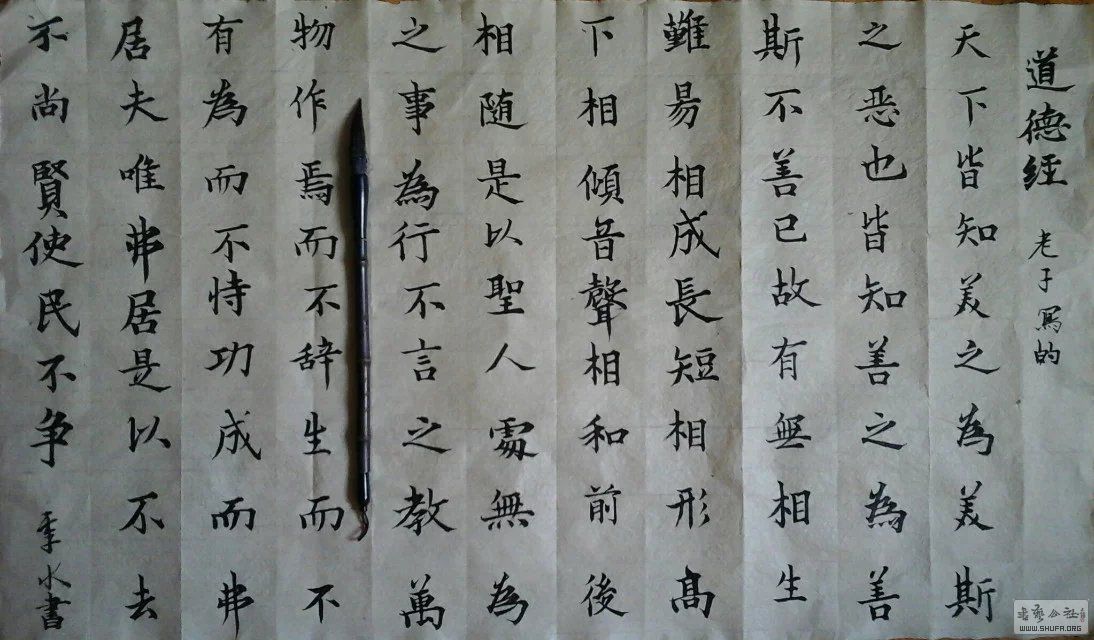 道德经 老子寫的
天下皆知美之為美斯
之恶也皆知善之為善
斯不善已故有無相生
難易相成長短相形高
下相傾音聲相和前後
相随是以聖人處無為
之事為行不言之教萬
物作焉而不辞生而不
有為而不恃功成而弗
居夫唯弗居是以不去
不尚賢使民不争 季水書
书艺公社
WWW.SHUFA.ORG